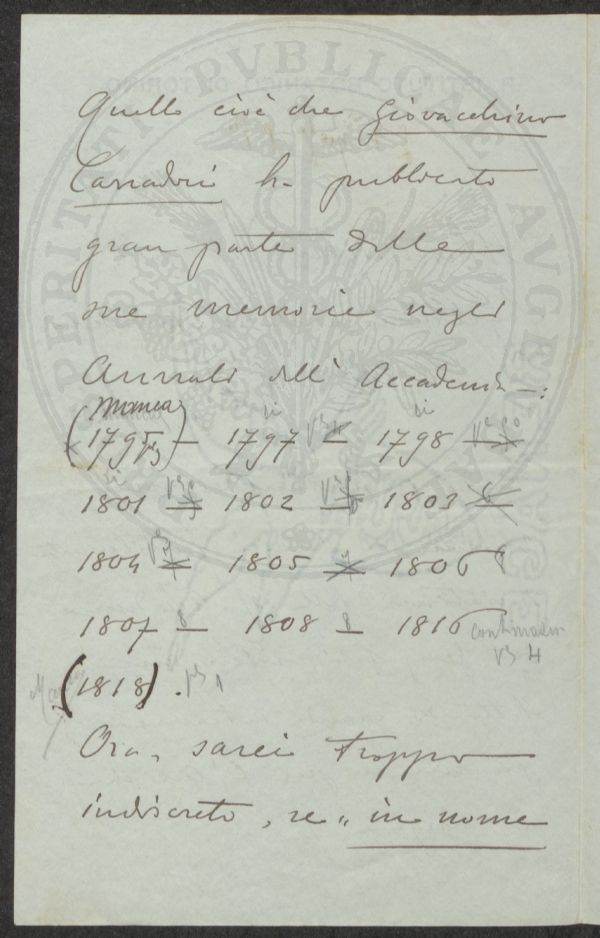 Quello cioè che Giovacchino
Carradori ha pubblicato
gran parte delle
sue memorie negli
Annali dell' Accademia —:
manca
(1795) — 1797 — 1798 —
1801 — 1802 — 1803 —
1804 — 1805 — 1806
1807 8 — 1808 8 — 1816
continuazion
4
(1818).
Ora, sarei troppo
indiscreto, se "in nome
PERITIA PVBLICAE AVGE